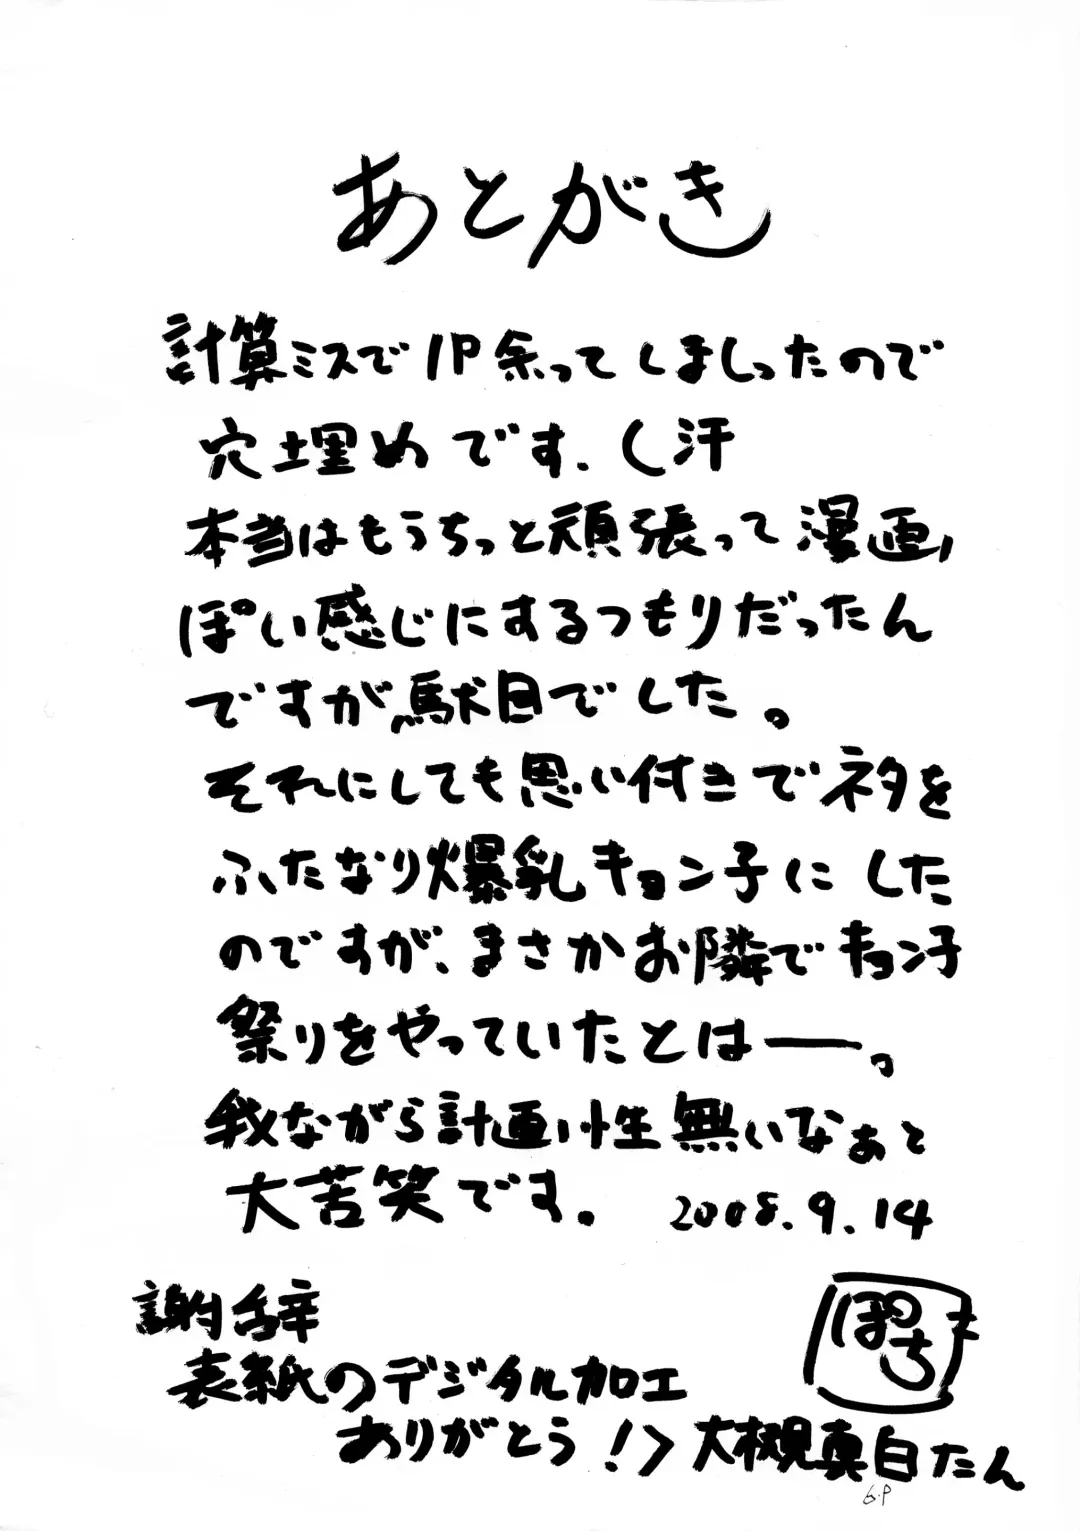 あとがき
計算ミスで1P余ってしまったので
穴埋めです、(汗
本当はもうちっと頑張って漫画
っぽい感じにするつもりだったん
ですが、駄目でした。
それにしても思い付きでネタを
ふたなり爆乳キョン子にした
のですが、まさかお隣でキョン子
祭りをやっていたとはー。
我ながら計画性無いなぁと
大苦笑です。 2008.9.14
謝辞
表紙のデジタル加工
ありがとう!>大槻真白たん
ぽち
6.P